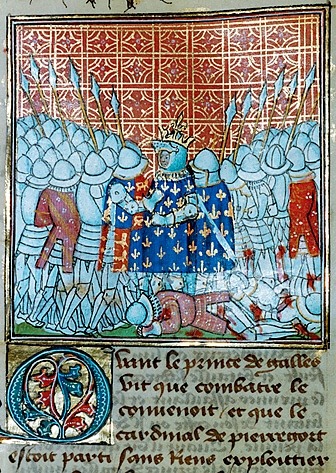 Quant le prince de galles
vit que combatre le
conuenoit / et que le
cardinal de pierregort
estoit parti sans Riens exploittier